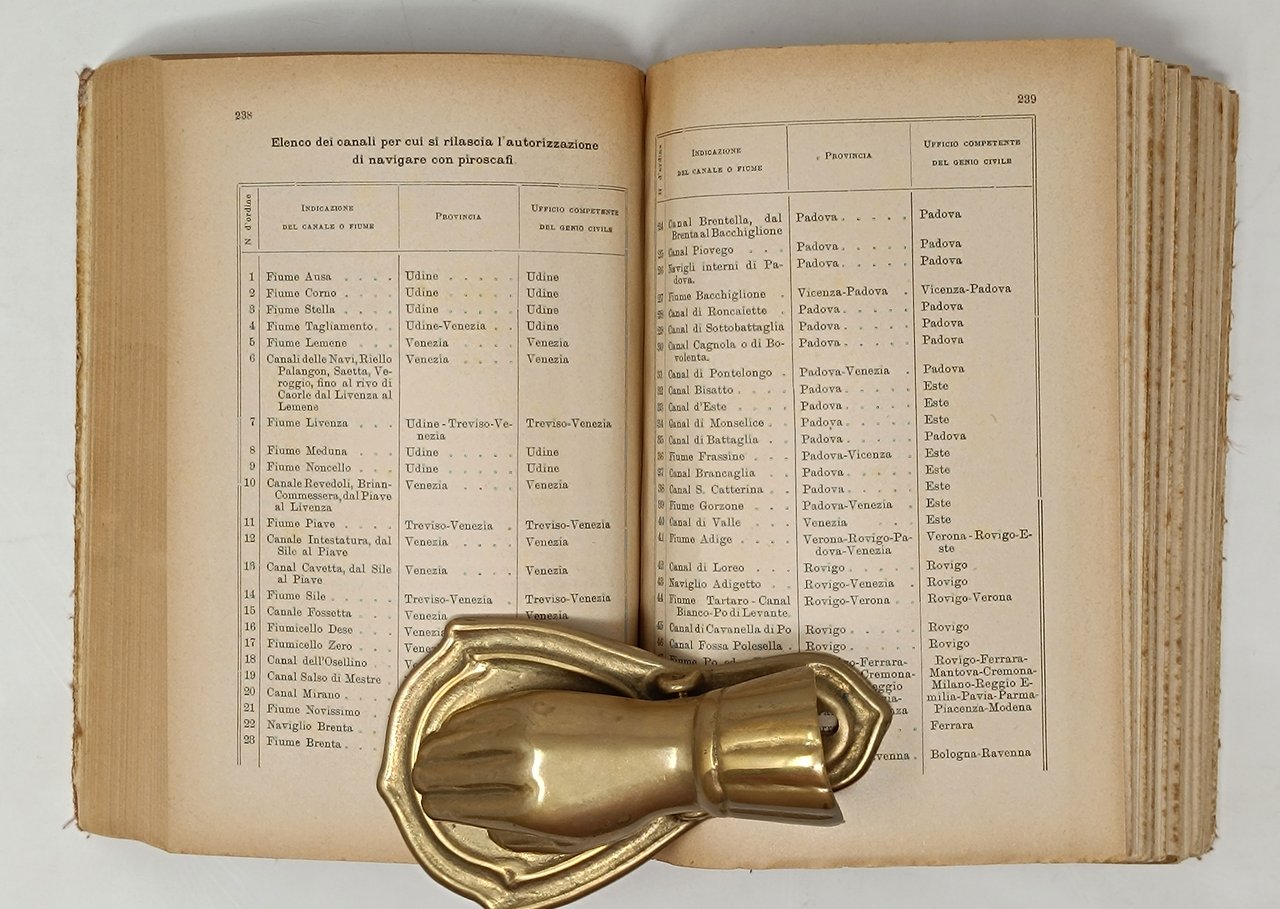 238
Elenco dei canali per cui si rilascia l'autorizzazione
di navigare con piroscafi
N d'ordine
INDICAZIONE
DEL CANALE O FIUME
PROVINCIA
UFFICIO COMPETENTE
DEL GENIO CIVILE
1 Fiume Ausa . . . . Udine . . . . . Udine
2 Fiume Corno . . . . Udine . . . . . Udine
3 Fiume Stella . . . . Udine . . . . . Udine
4 Fiume Tagliamento. . Udine-Venezia . . Udine
5 Fiume Lemene . . . Venezia . . . . Venezia
6 Canali delle Navi, Riello Venezia . . . . Venezia
Palangon, Saetta, Ve-
roggio, fino al rivo di
Caorle dal Livenza al
Lemene
7 Fiume Livenza . . . Udine-Treviso-Ve- Treviso-Venezia
nezia
8 Fiume Meduna . . . Udine . . . . . Udine
9 Fiume Noncello . . . Udine . . . . . Udine
10 Canale Revedoli, Brian- Venezia . . . . Venezia
Commessera, dal Piave
al Livenza
11 Fiume Piave . . . . Treviso-Venezia . Treviso-Venezia
12 Canale Intestatura, dal Venezia . . . . Venezia
Sile al Piave
13 Canal Cavetta, dal Sile Venezia . . . . Venezia
al Piave
14 Fiume Sile . . . . Treviso-Venezia . Treviso-Venezia
15 Canale Fossetta . . Venezia Venezia
16 Fiumicello Dese . . Venezia
17 Fiumicello Zero . .
18 Canal dell'Osellino .
19 Canal Salso di Mestre .
20 Canal Mirano . . .
21 Fiume Novissimo . .
22 Naviglio Brenta . .
23 Fiume Brenta . . .
239
N d'ordine
INDICAZIONE
DEL CANALE O FIUME
PROVINCIA
UFFICIO COMPETENTE
DEL GENIO CIVILE
24 Canal Brentella, dal Padova . . . . . Padova
Brenta al Bacchiglione
25 Canal Piovego . . . Padova . . . . . Padova
26 Navigli interni di Pa- Padova . . . . . Padova
dova.
27 Fiume Bacchiglione . Vicenza-Padova . Vicenza-Padova
28 Canal di Roncaiette . Padova . . . . . Padova
29 Canal di Sottobattaglia Padova . . . . . Padova
30 Canal Cagnola o di Bo- Padova . . . . . Padova
volenta.
31 Canal di Pontelongo . Padova-Venezia . Padova
32 Canal Bisatto . . . . Padova . . . . . Este
33 Canal d'Este . . . . Padova . . . . . Este
34 Canal di Monselice . . Padova . . . . . Este
35 Canal di Battaglia . . Padova . . . . . Padova
36 Fiume Frassine . . . Padova-Vicenza . Este
37 Canal Brancaglia . . Padova . . . . . Este
38 Canal S. Catterina . . Padova . . . . . Este
39 Fiume Gorzone . . . Padova-Venezia . Este
40 Canal di Valle . . . Venezia . . . . Este
41 Fiume Adige . . . . Verona-Rovigo-Pa- Verona-Rovigo-E-
dova-Venezia ste
42 Canal di Loreo . . . Rovigo . . . . . Rovigo
43 Naviglio Adigetto . . Rovigo-Venezia . Rovigo
44 Fiume Tartaro-Canal Rovigo-Verona . . Rovigo-Verona
Bianco-Po di Levante.
45 Canal di Cavanella di Po Rovigo . . . . . Rovigo
46 Canal Fossa Polesella . Rovigo . . . . . Rovigo
Fiume Po -Ferrara- Rovigo-Ferrara-
Cremona- Mantova-Cremona-
Milano-Reggio E-
milia-Pavia-Parma-
Piacenza-Modena
Ferrara
Bologna-Ravenna